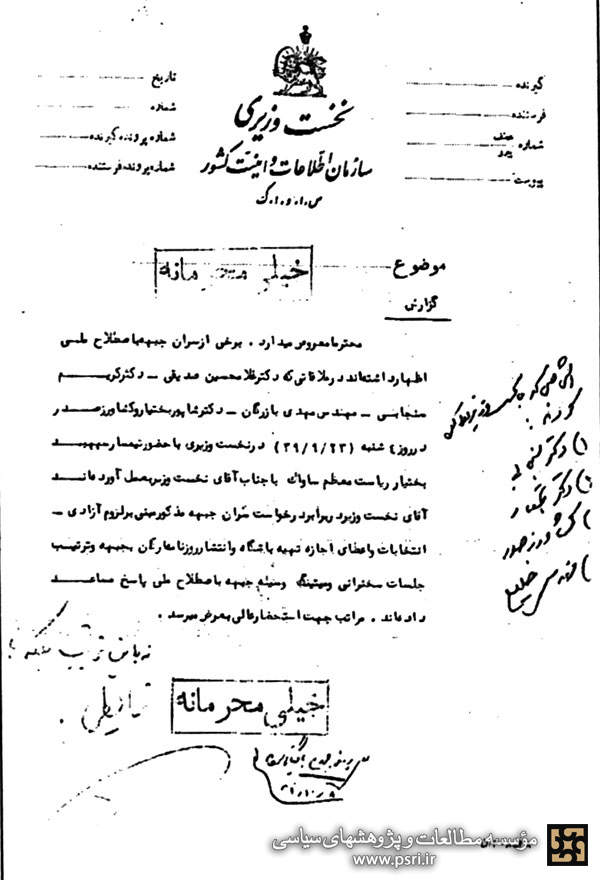 نخست وزیری
سازمان اطلاعات و امنیت کشور
س.ا.و.ا.ک
گیرنده
فرستنده
شماره
پیوست
تاریخ
شماره
شماره پرونده گیرنده
شماره پرونده فرستنده
موضوع
خیلی محرمانه
گزارش
محترما معروض میدارد . برخی از سران جبهه باصطلاح ملی
اظهار داشته‌اند در ملاقاتی که دکتر غلامحسین صدیقی - دکتر کریم
سنجابی - مهندس مهدی بازرگان - دکتر شاپور بختیار و کشاورز صدر
در روز ۴ شنبه (۳۹/۹/۲۳) در نخست وزیری با حضور تیمسار سپهبد
بختیار ریاست معظم ساواک با جناب آقای نخست وزیر بعمل آورده‌اند
آقای نخست وزیر در برابر درخواست سران جبهه مذکور مبنی بر لزوم آزادی -
انتخابات و اعطای اجازه تهیه باشگاه و انتشار روزنامه ارگان جبهه و ترتیب
جلسات سخنرانی و میتینگ وسیله جبهه باصطلاح ملی پاسخ مساعد
داده‌اند . مراتب جهت استحضار عالی بعرض میرسد .
خیلی محرمانه
دکتر
دکتر
کشاورز صدر
مؤسسه مطالعات و پژوهشهای سیاسی
www.psri.ir